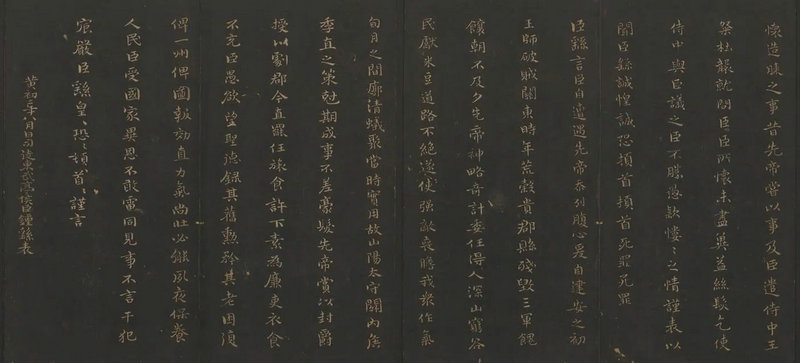 懷造膝之事昔先帝嘗以事及臣遣侍中王
粲杜襲就問臣臣所懷未盡冀益絲髮乞使
侍中與臣議之臣不勝愚款慺〻之情謹表以
聞臣繇誠惶誠恐頓首頓首死罪死罪
臣繇言臣自遭遇先帝忝列腹心爰自建安之初
王師破賊關東時年荒穀貴郡縣殘毀三軍餽
饟朝不及夕先帝神略奇計委任得人深山窮谷
民獻米豆道路不絕遂使強敵喪膽我眾作氣
旬月之間廓清蟻聚當時實用故山陽太守關內侯
季直之策剋期成事不差豪髮先帝賞以封爵
授以劇郡今直罷任旅食許下素為廉吏衣食
不充臣愚欲望聖德錄其舊勳矜其老困復
俾一州俾圖報效直力氣尚壯必能夙夜保養
人民臣受國家異恩不敢雷同見事不言干犯
宸嚴臣繇皇〻恐〻頓首〻謹言
黃初二年八月日司徒東武亭侯臣鍾繇表